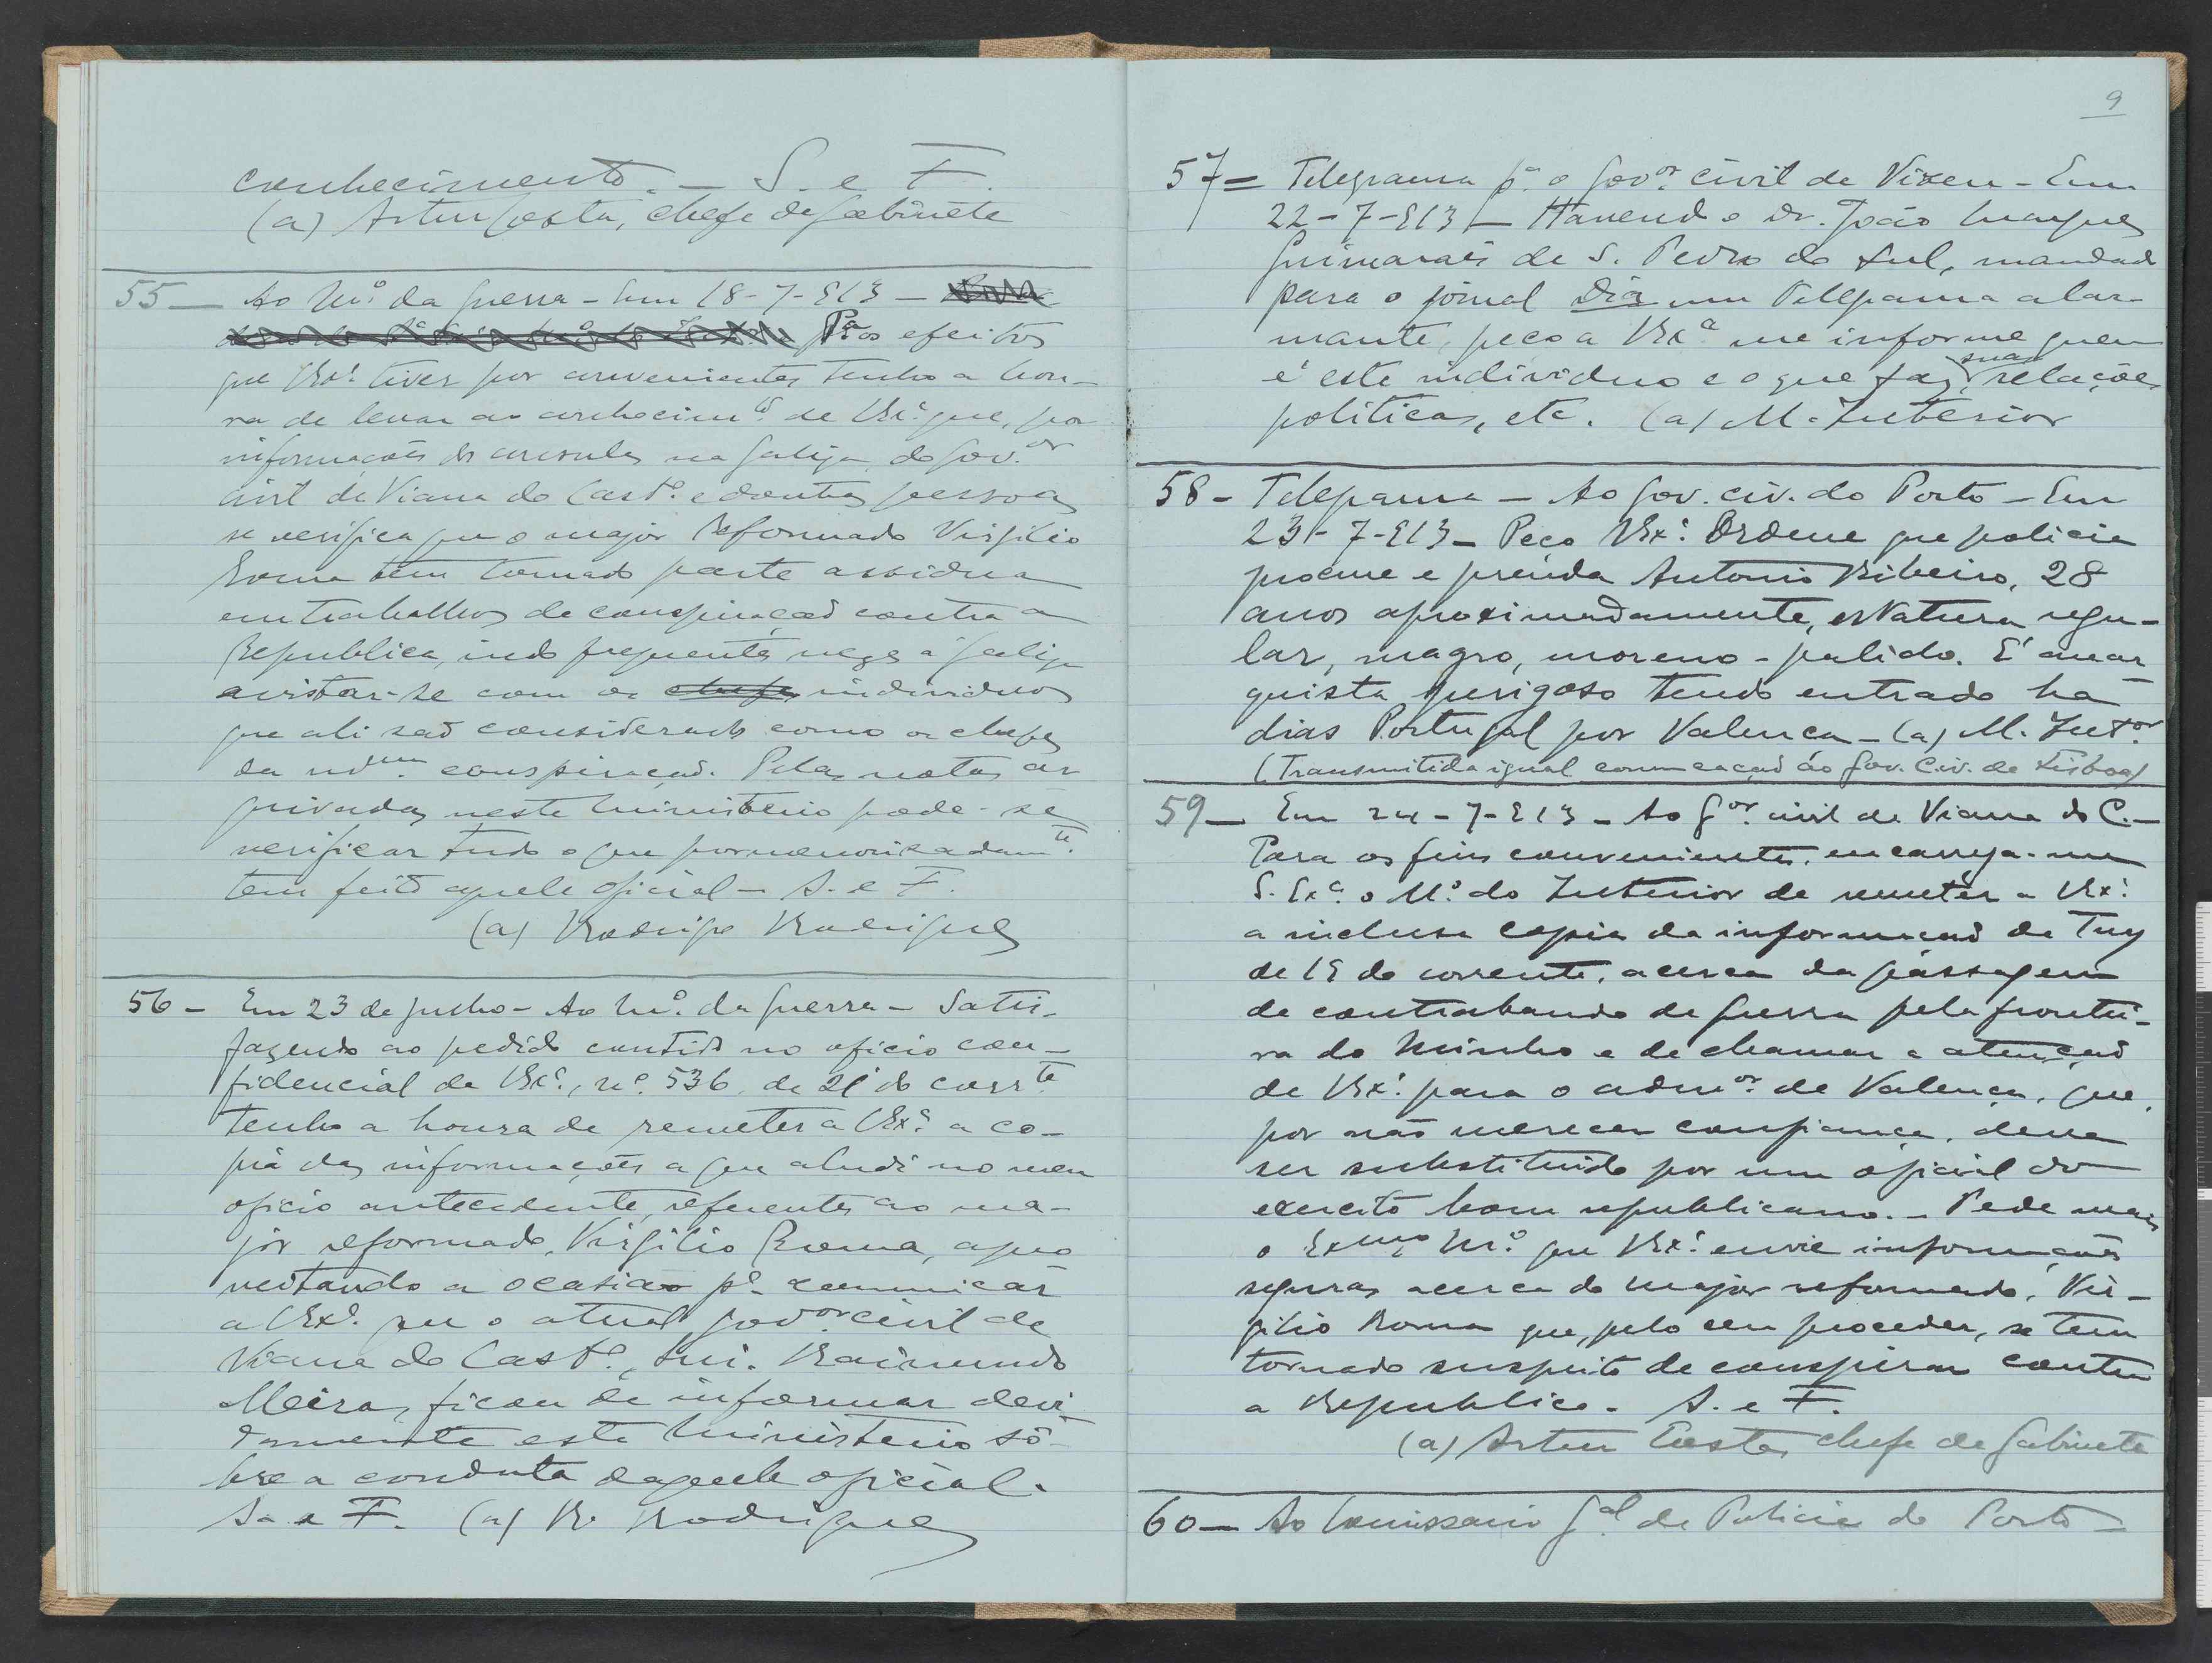 conhecimento. — S. e F.
(a) Artur Costa, chefe de gabinete
55 — Ao Mº da Guerra - Em 18-7-913 —
Pª os efeitos
que V.Exª tiver por convenientes tenho a hon-
ra de levar ao conhecimtº de V.Exª que, por
informações dos consules na Galiza, do Gov.or
civil de Viana do Castº e doutras pessoas
se verifica que o major reformado Virgilio
Roma tem tomado parte assidua
em trabalhos de conspiração contra a
Republica, indo frequentes vezes á Galiza
avistar-se com os chefes individuos
que ali são considerados como os chefes
da mma conspiração. Pelas notas ar
quivadas neste Ministerio pode-se
verificar tudo o que pormenorisadamte
tem feito aquele oficial — S. e F.
(a) Rodrigo Rodrigues
56 - Em 23 de julho - Ao Mº da Guerra - Satis-
fazendo ao pedido contido no oficio con-
fidencial de V.Exª, nº 536, de 21 do corrte
tenho a honra de remeter a V.Exª a co-
pia das informações a que aludi no meu
oficio antecedente, referentes ao ma-
jor reformado, Virgilio Roma, apro
veitando a ocasião pª comunicar
a V.Exª que o atual govor civil de
Viana do Castº, Snr. Raimundo
Meira, ficou de informar devi
damente este Ministerio sô-
bre a conduta daquele oficial.
S. e F. (a) R. Rodrigues
9
57 = Telegrama pª o Govor civil de Vizeu - Em
22-7-913 — Havendo Dr. João Marques
Guimarães de S. Pedro do Sul, mandado
para o jornal Dia um telegrama alar-
mante, peço a V.Exª me informe quem
é este individuo e o que faz, suas relações
politicas, etc. (a) M. Interior
58 - Telegrama — Ao Gov. civ. do Porto — Em
23-7-913 — Peço V.Exª Ordene que policia
procure e prenda Antonio Ribeiro, 28
anos aproximadamente, estatura regu-
lar, magro, moreno-palido. É anar
quista perigoso tendo entrado ha
dias Portugal por Valença — (a) M. Intor
(Transmitida igual comunicação ao Gov. Civ. de Lisboa)
59 — Em 24-7-913 — Ao Gor civil de Viana do C. —
Para os fins convenientes, encarrega-me
S. Exª o Mº do Interior de remeter a V.Exª
a inclusa copia da informação de Tuy
de 19 do corrente, acerca da passagem
de contrabando de guerra pela frontei-
ra do Minho e de chamar a atenção
de V.Exª para o admor de Valença, que,
por não merecer confiança, deve
ser substituido por um oficial do
exercito bom republicano. — Pede mais
o Exmo Mº que V.Exª envie informações
seguras acerca do major reformado, Vir-
gilio Roma que, pelo seu proceder, se tem
tornado suspeito de conspirar contra
a Republica. S. e F.
(a) Artur Costa, chefe de gabinete
60 — Ao Comissario Gal de Policia do Porto —